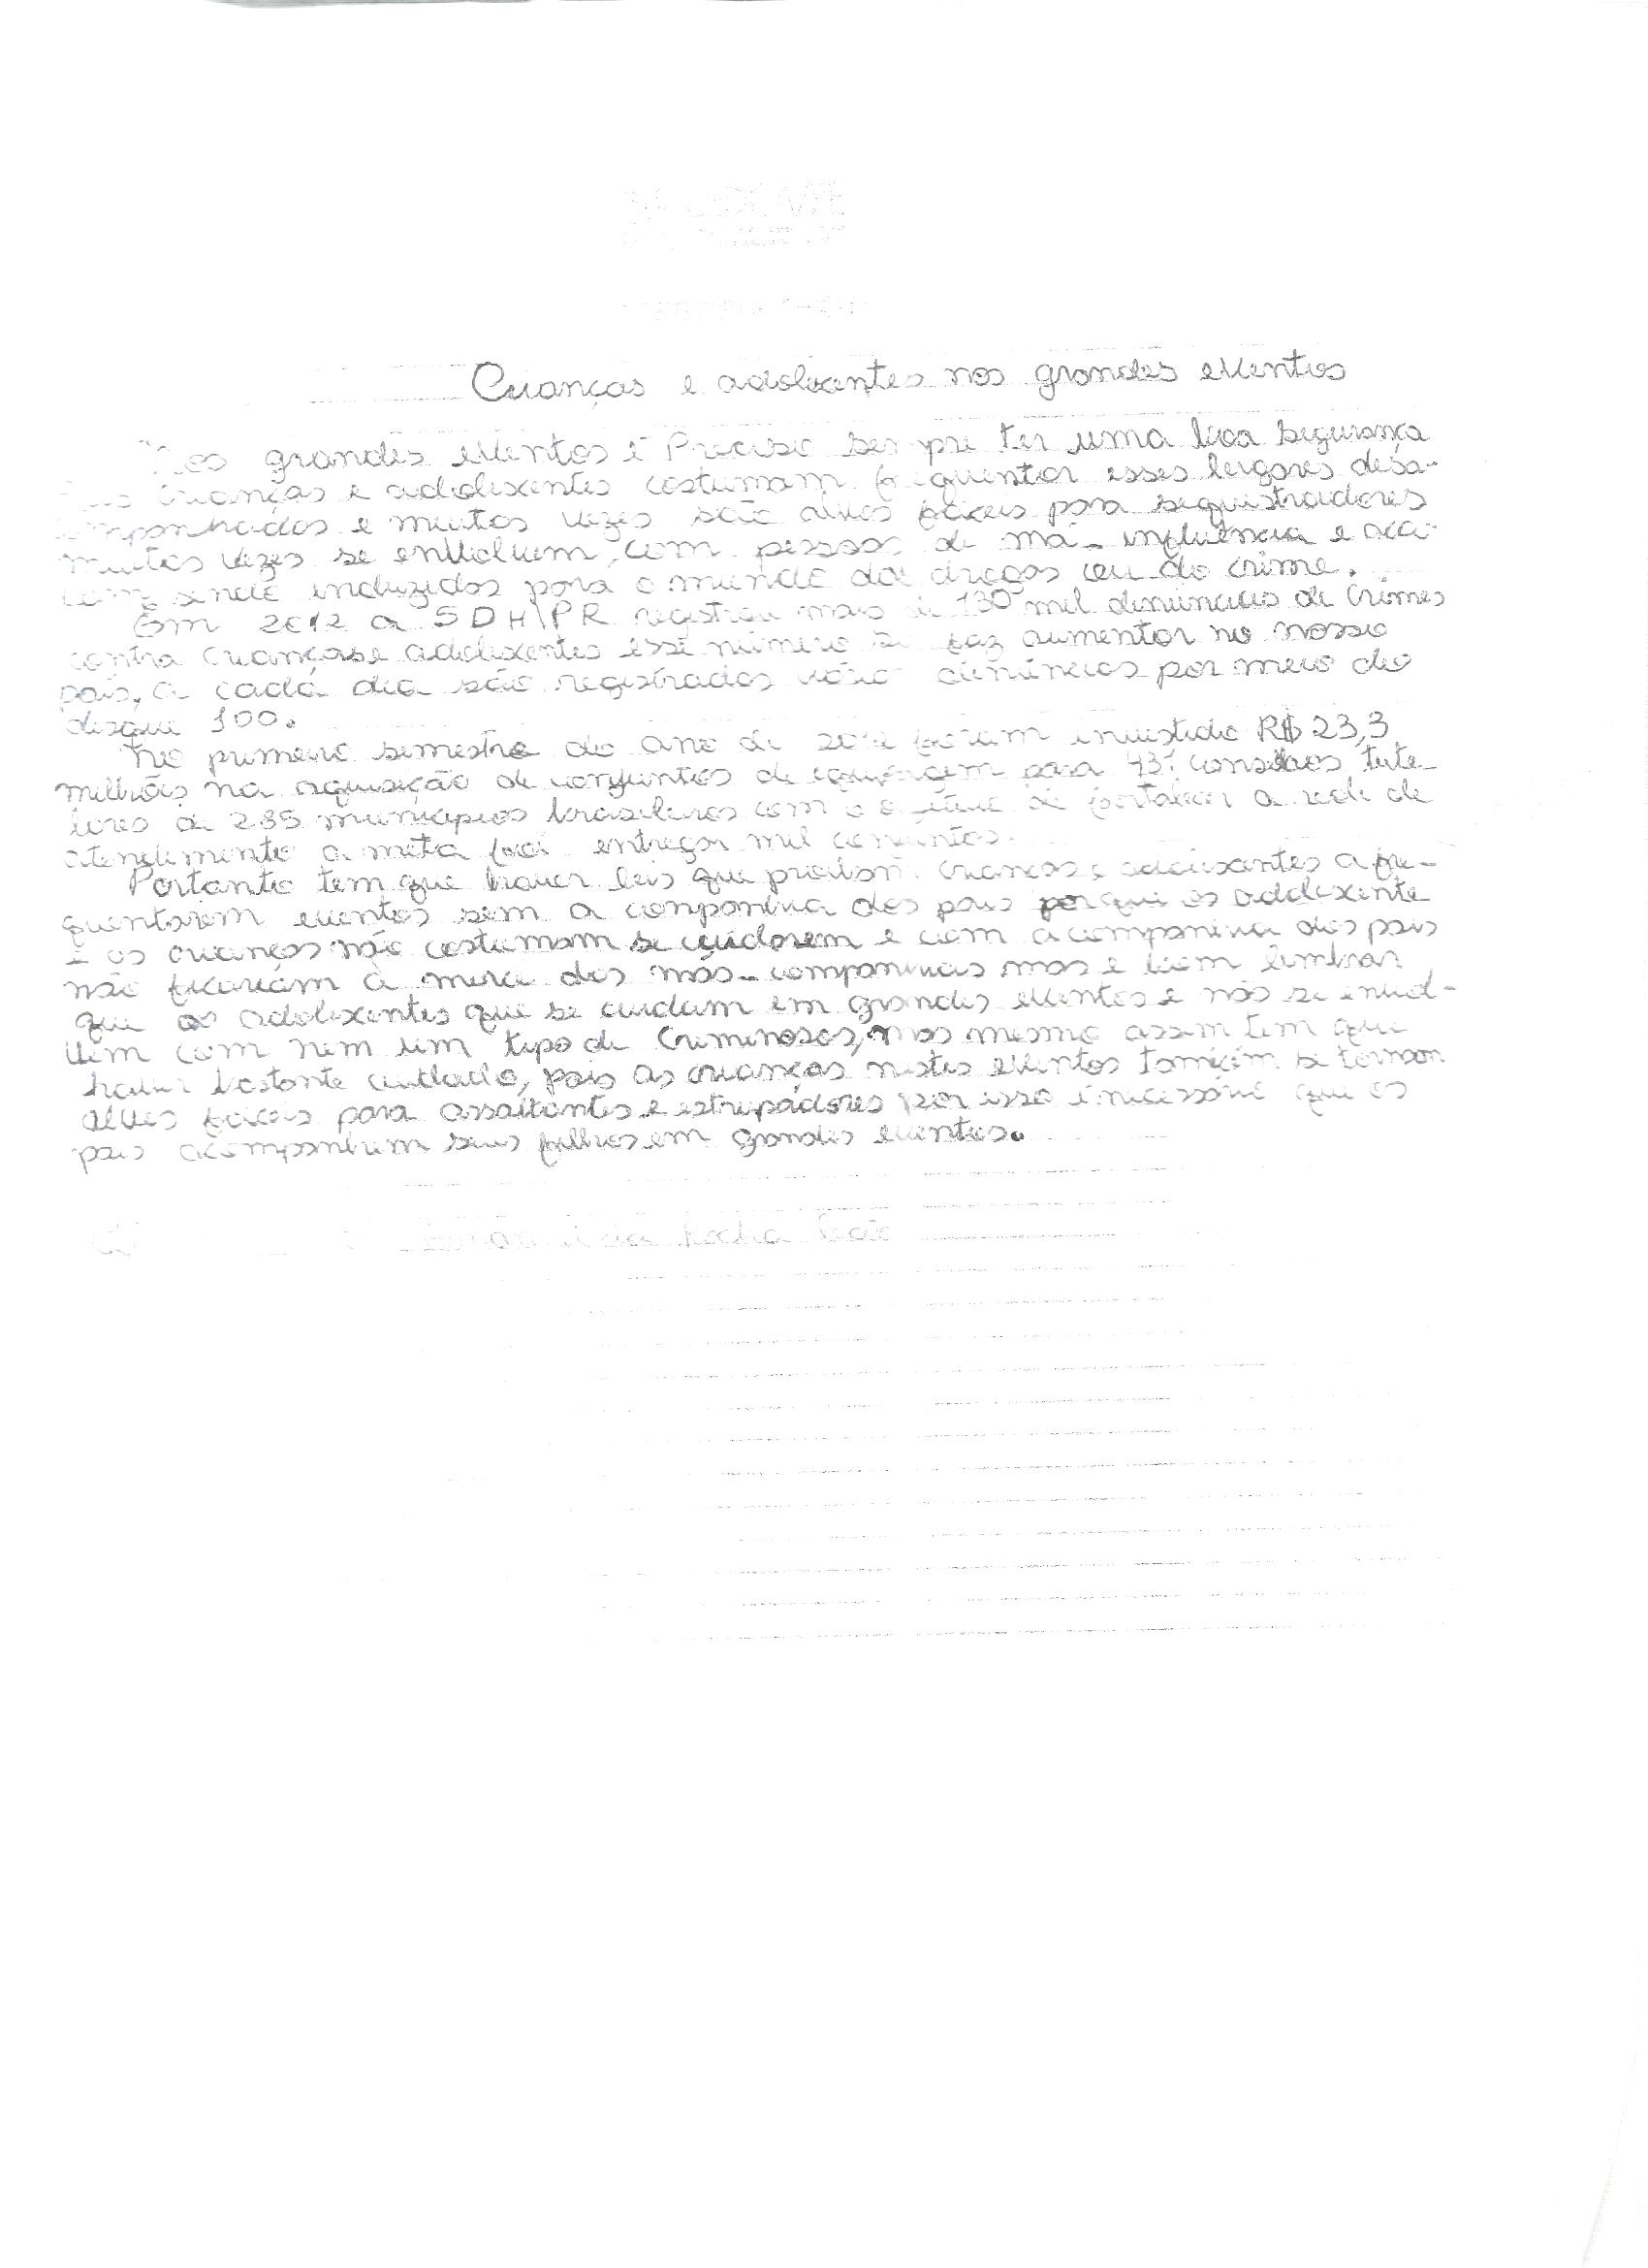 Crianças e adolecentes nos grandes eventos
Nos grandes eventos é Preciso sempre ter uma boa segurança
crianças e adolescentes costumam frequentar esses lugares desa-
companhados e muitas vezes são alvos fáceis para sequestradores
muitas vezes se envolvem com pessoas de má-influência e aca-
bam sendo induzidos para o mundo das drogas ou do crime.
Em 2012 a SDH\PR registrou mais de 130 mil denúncias de crimes
contra crianças e adolescentes esse número se faz aumentar no nosso
país, a cada dia são registradas denúncias por meio do
disque 100.
No primeiro semestre do ano de foram investido R$ 23,3
milhões na aquisição de conjuntos de para conselhos tute-
lares de 285 municípios brasileiros com o de fortalecer a rede de
atendimento a meta foi entregar mil conjuntos.
Portanto tem que haver leis que crianças e adolescentes a fre-
quentarem eventos sem a companhia dos pais porque os adolescente
e as crianças não costumam se cuidarem e com a companhia dos pais
não ficariam à merce das más-companhias mas e bom lembrar
que as adolescentes que se cuidam em grandes eventos e não se envol-
vem com nem um tipo de criminosos, mas mesmo assim tem que
haver bastante cuidado, pois as crianças nestes eventos também se tornam
alvos faceis para assaltantes e estrupadores por isso é necessário que os
pais acompanhem seus filhos em grandes eventos.
da Rocha